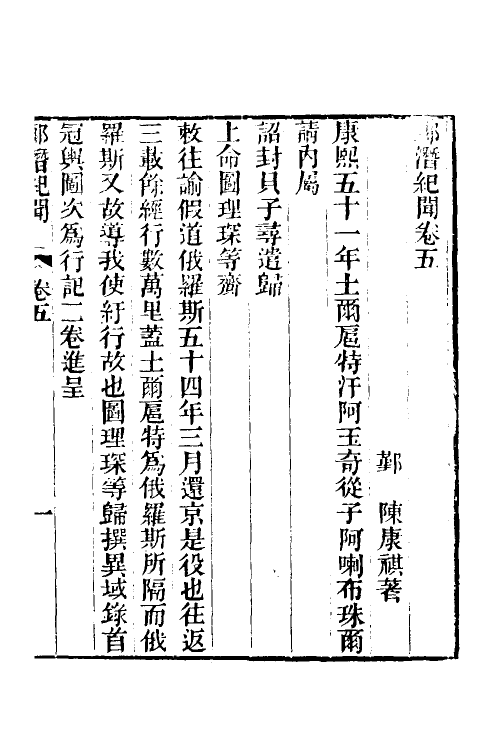 郎潛紀聞卷五
鄞　陳康祺著
康熙五十一年土爾扈特汗阿玉奇從子阿喇布珠爾
請內屬
詔封貝子尋遣歸
上命圖理琛等齎
敕往諭假道俄羅斯五十四年三月還京是役也往返
三載餘經行數萬里蓋土爾扈特為俄羅斯所隔而俄
羅斯又故導我使紆行故也圖理琛等歸撰異域錄首
冠輿圖次為行記二卷進呈
郎潛紀聞　卷五　一